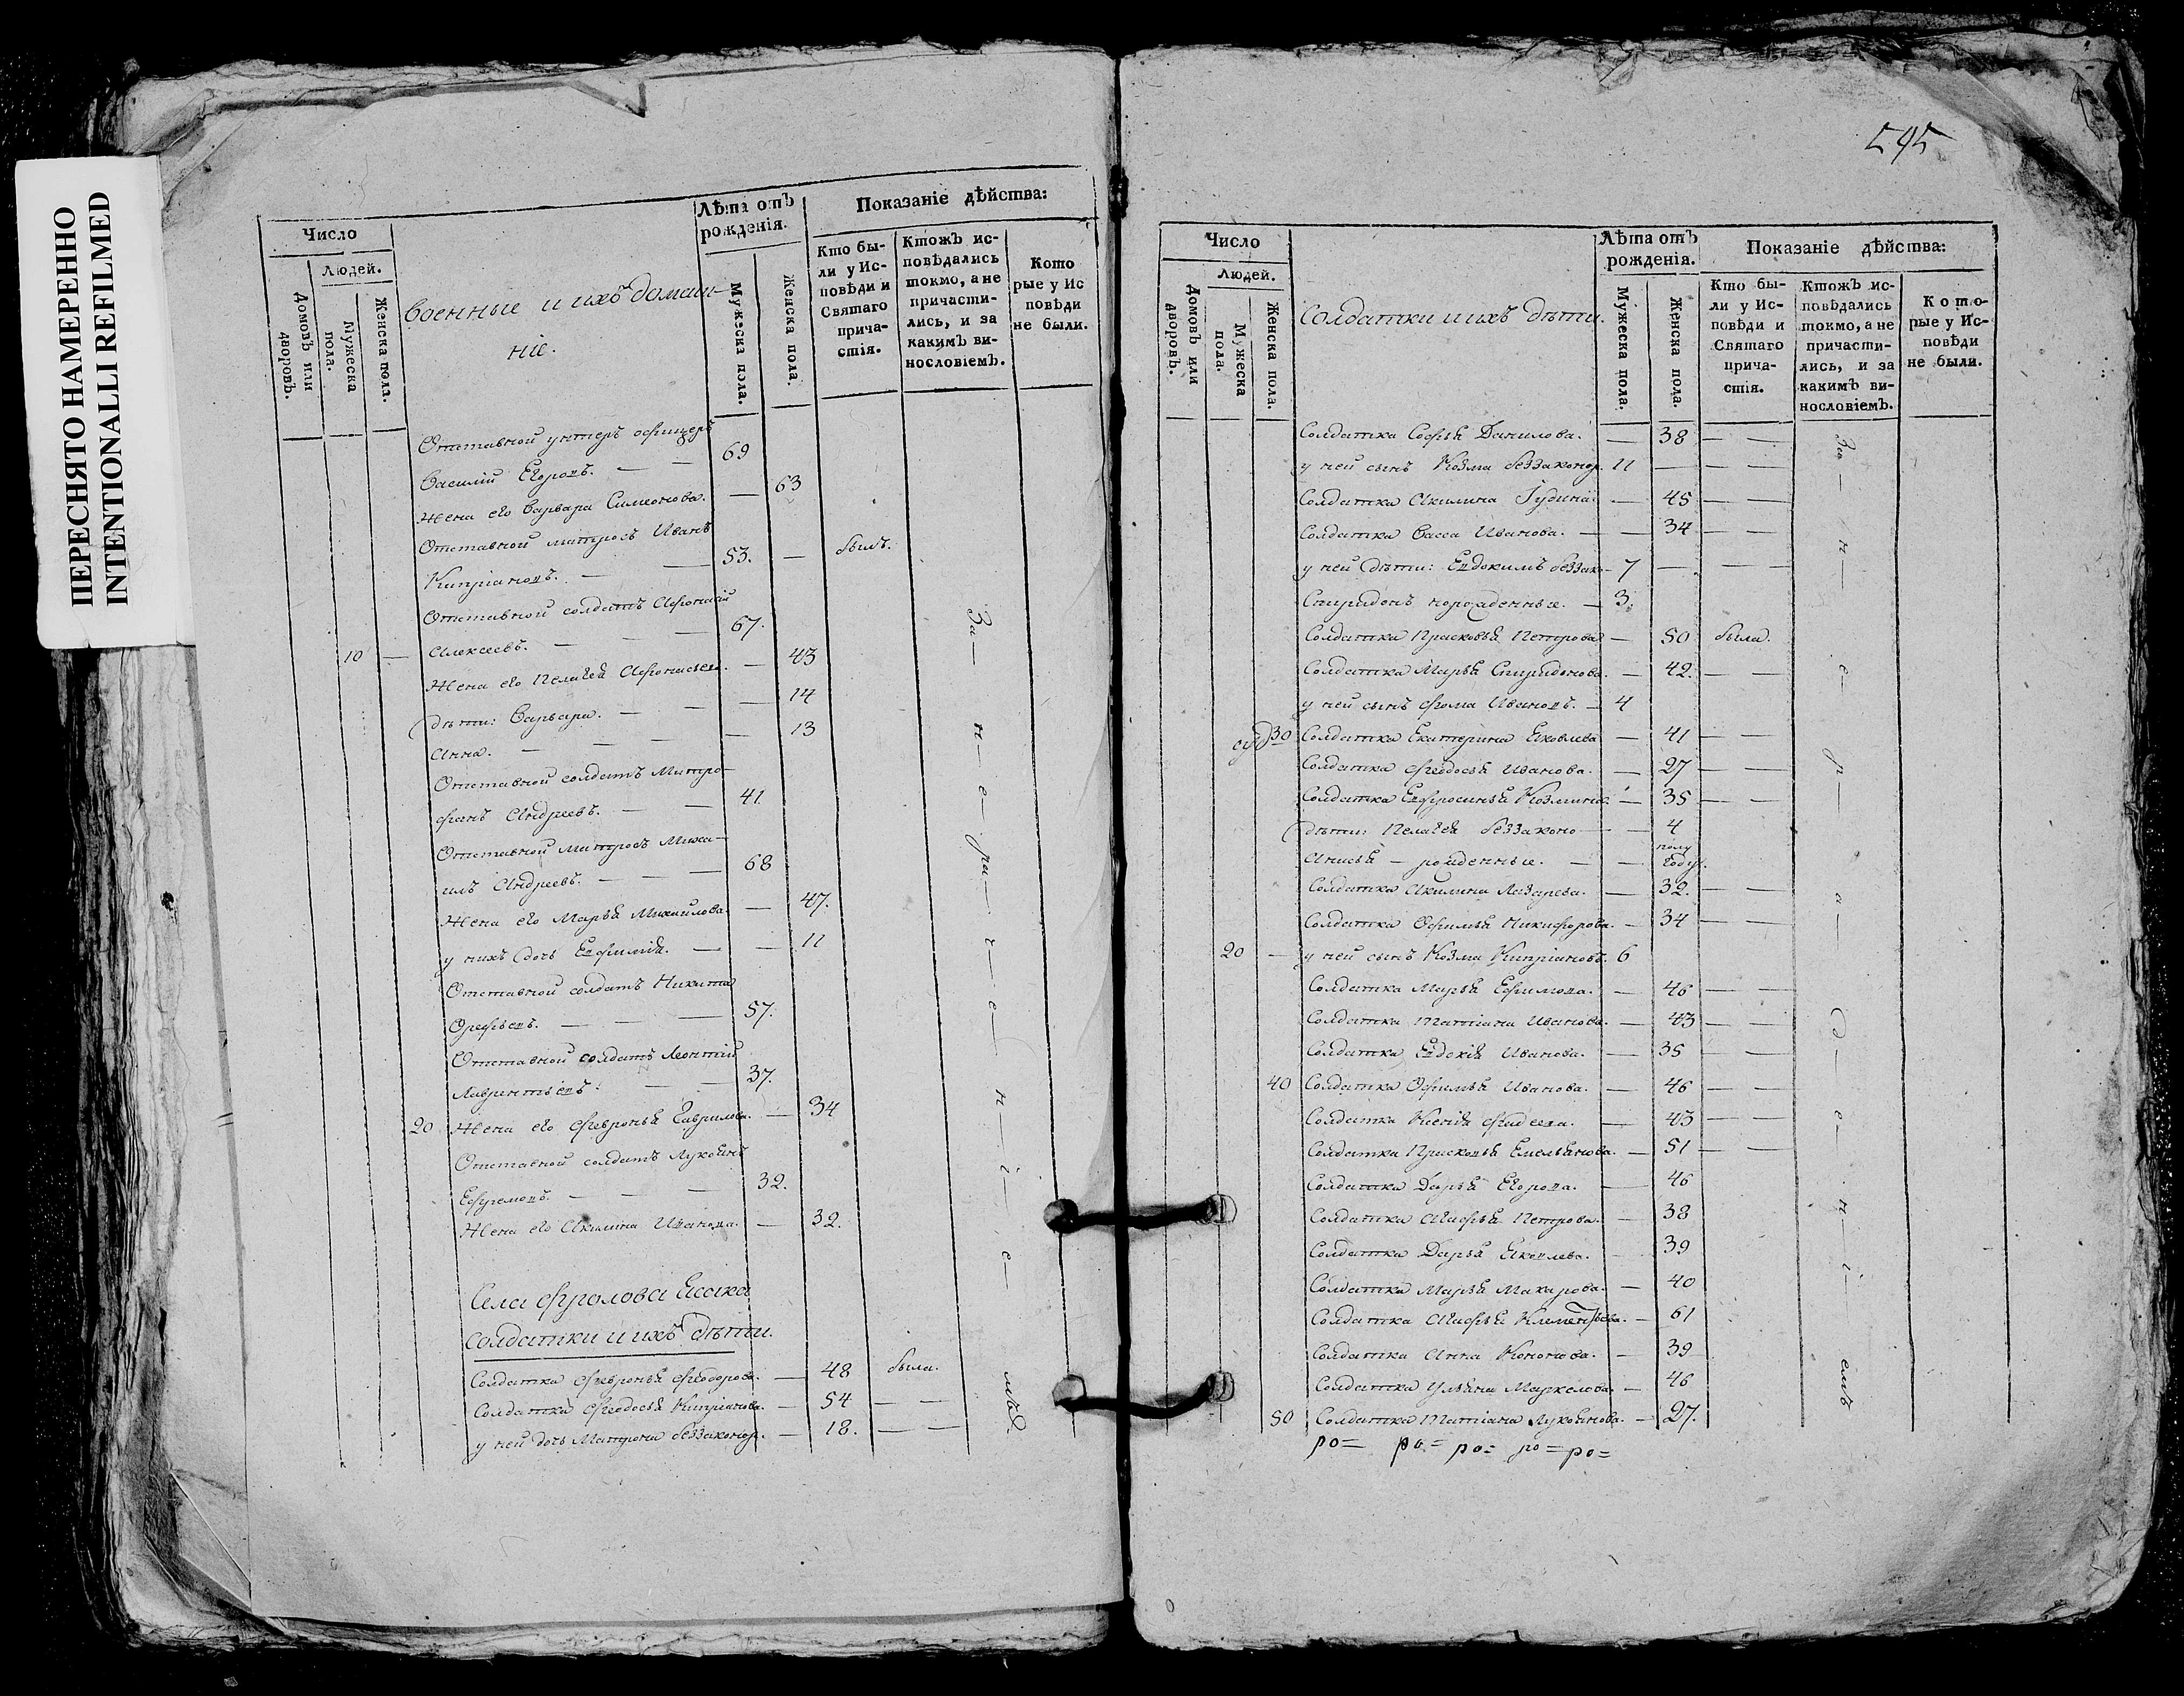 ПЕРЕСНЯТО НАМЕРЕННО
INTENTIONALLI REFILMED
Число
Людей.
Домовъ или дворовъ.
Мужеска пола.
Женска пола.
военные и ихъ домаш-
ніе.
Лѣта отъ
рожденія.
Мужеска пола.
Женска пола.
Показаніе дѣйства:
Кто бы-
ли у Ис-
повѣди и
Святаго
прича-
стія.
Ктожъ ис-
повѣдались
токмо, а не
причасти-
лись, и за
какимъ ви-
нословіемъ.
Кото
рые у Ис
повѣди
не были.
Отставной унтеръ офицеръ
Василій Егоровъ. — — 69
Жена его Варвара Симеонова. — 63
Отставной матросъ Иванъ
Кипріановъ. — — 53. — былъ.
Отставной солдатъ Афонасій
10 — Алексеевъ. — — — 67.
Жена его Пелагея Афонасьева. — 43
дѣти: Варвара. — — — 14
Анна. — — — — 13
Отставной солдатъ Митро-
фанъ Андреевъ. — — 41
Отставной матросъ Миха-
илъ Андреевъ. — — — 68
Жена его Марья Михаилова. — 47.
у нихъ дочь Евфимія. — — 11
Отставной солдатъ Никита
Орефьевъ. — — — 57.
Отставной солдатъ Леонтій
Лаврентьевъ. — — 37.
20 Жена его Февронья Гаврилова. — 34
Отставной солдатъ Лукоянъ
Ефремовъ. — — — 32.
Жена его Акилина Иванова. — 32.
За — н — е — ра — ч — е — н — і — е — мъ
Села Фролова Ясака
солдатки и ихъ дѣти.
Солдатка Февронья Феодорова. — 48 была.
Солдатка Феодосья Кипріанова. — 54 — —
у ней дочь Матрона беззаконор. — 18. — —
595
Число
Людей.
Домовъ или дворовъ.
Мужеска пола.
Женска пола.
Солдатки и ихъ дѣти.
Лѣта отъ
рожденія.
Мужеска пола.
Женска пола.
Показаніе дѣйства:
Кто бы-
ли у Ис-
повѣди и
Святаго
прича-
стія.
Ктожъ ис-
повѣдались
токмо, а не
причасти-
лись, и за
какимъ ви-
нословіемъ.
Кото-
рые у Ис-
повѣди
не были.
Солдатка Софья Данилова. — 38 — —
у ней сынъ Козма беззаконор. 11 — — —
Солдатка Акилина Гудина. — 45 — —
Солдатка Васса Иванова. — — 34 — —
у ней дѣти: Евдокимъ беззако- 7 — — —
Спиридонъ норожденные. — 3.
Солдатка Прасковья Петрова — 50 была.
Солдатка Марья Спиридонова. — 42. — —
у ней сынъ Фома Ивановъ. — 4
30 Солдатка Екатерина Яковлева — 41 — —
Солдатка Феодосья Иванова. — 27 — —
Солдатка Евфросинья Козмина. — 35 — —
дѣти: Пелагея беззаконо — — 4
Анисья — рожденные. — — полу году.
Солдатка Акилина Лазарева. — 32. — —
Солдатка Офимья Никифорова. — 34 — —
20 — у ней сынъ Козма Кипріановъ. 6
Солдатка Марья Ефимова. — 46 — —
Солдатка Татіана Иванова. — 43 — —
Солдатка Евдокія Иванова. — 35 — —
40 Солдатка Офимья Иванова. — 46 — —
Солдатка Ксенія Фадеева. — 43 — —
Солдатка Прасковья Емельянова. — 51 — —
Солдатка Дарья Егорова. — 46
Солдатка Агафья Петрова. — 38
Солдатка Дарья Яковлева. — 39
Солдатка Марья Макарова. — 40
Солдатка Агафья Клементьева. — 61
Солдатка Анна Кононова. — 39
Солдатка Ульяна Маркелова. — 46
50 Солдатка Татіана Лукоянова. — 27.
ро= ро= ро= ро= ро=